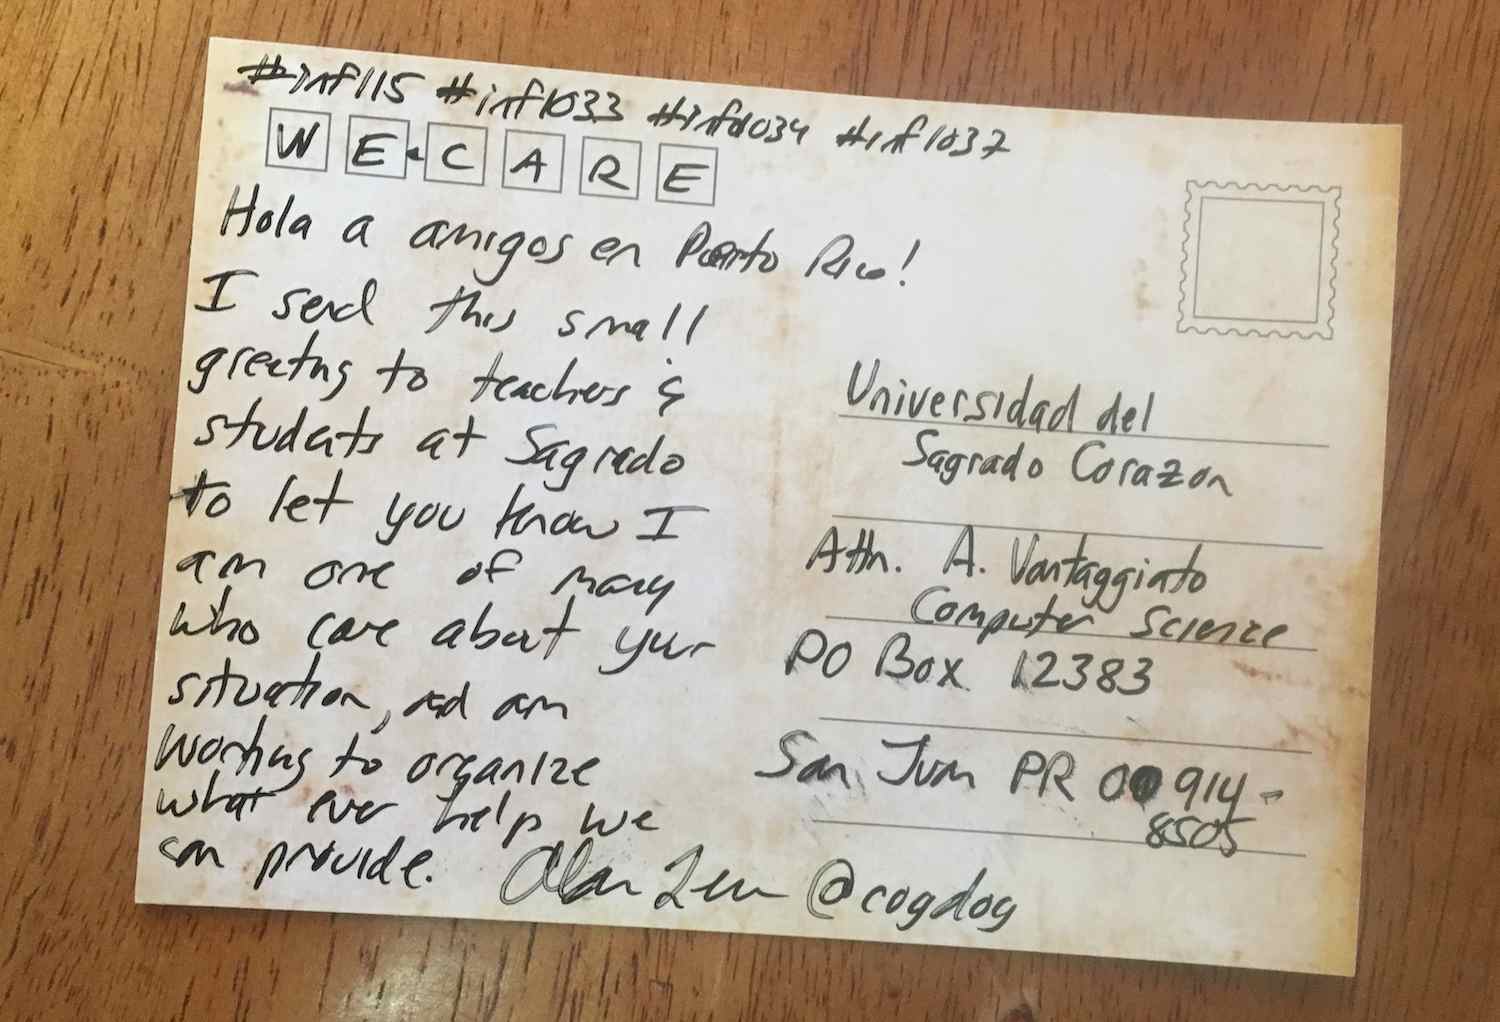 #inf115 #inf1033 #inf1034 #inf1037
WE-CARE
Hola a amigos en Puerto Rico!
I send this small
greeting to teachers &
students at Sagrado
to let you know I
am one of many
who care about your
situation, and am
working to organize
what ever help we
can provide. Alan Levine @cogdog
Universidad del
Sagrado Corazon
Attn. A. Vantaggiato
Computer Science
PO Box 12383
San Juan PR 00914-
8505